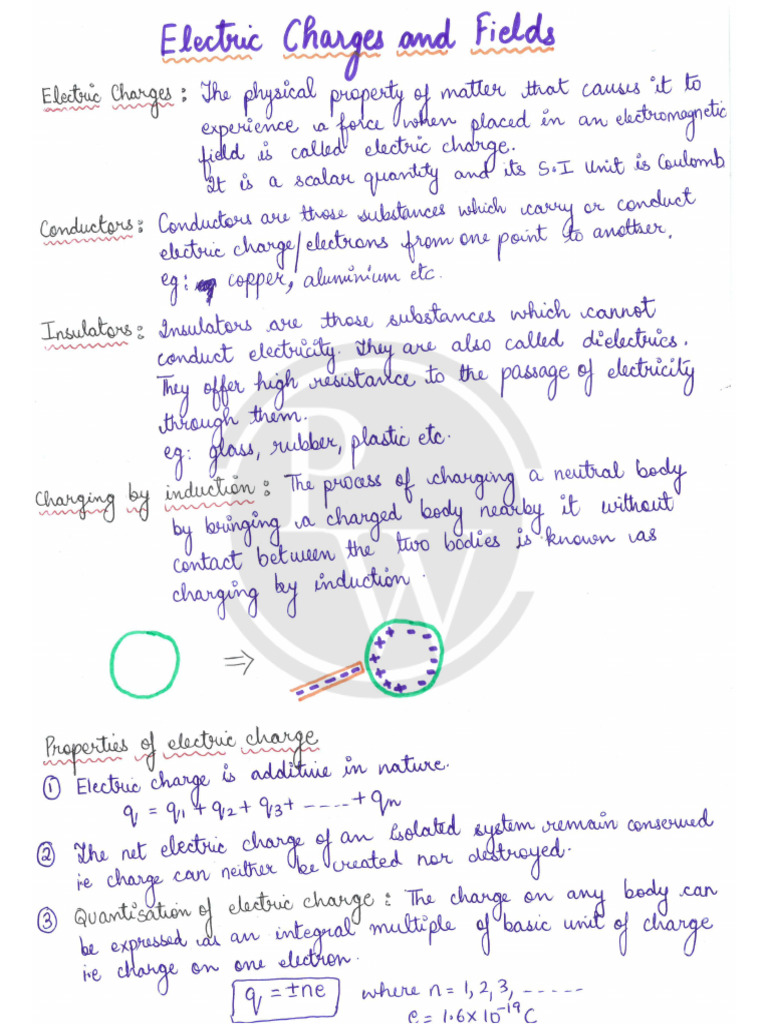 Electric Charges and Fields
Electric Charges: The physical property of matter that causes it to
experience a force when placed in an electromagnetic
field is called electric charge.
It is a scalar quantity and its S.I Unit is Coulomb
Conductors: Conductors are those substances which carry or conduct
electric charge/electrons from one point to another.
eg: copper, aluminium etc.
Insulators: Insulators are those substances which cannot
conduct electricity. They are also called dielectrics.
They offer high resistance to the passage of electricity
through them.
eg: glass, rubber, plastic etc.
Charging by induction: The process of charging a neutral body
by bringing a charged body nearby it without
contact between the two bodies is known as
charging by induction.
PW
⇒
Properties of electric charge
① Electric charge is additive in nature.
q = q₁ + q₂ + q₃ + ----- + qn
② The net electric charge of an isolated system remain conserved
i.e charge can neither be created nor destroyed.
③ Quantisation of electric charge: The charge on any body can
be expressed as an integral multiple of basic unit of charge
i.e charge on one electron.
q = ±ne where n = 1, 2, 3, -----
e = 1.6×10⁻¹⁹ C